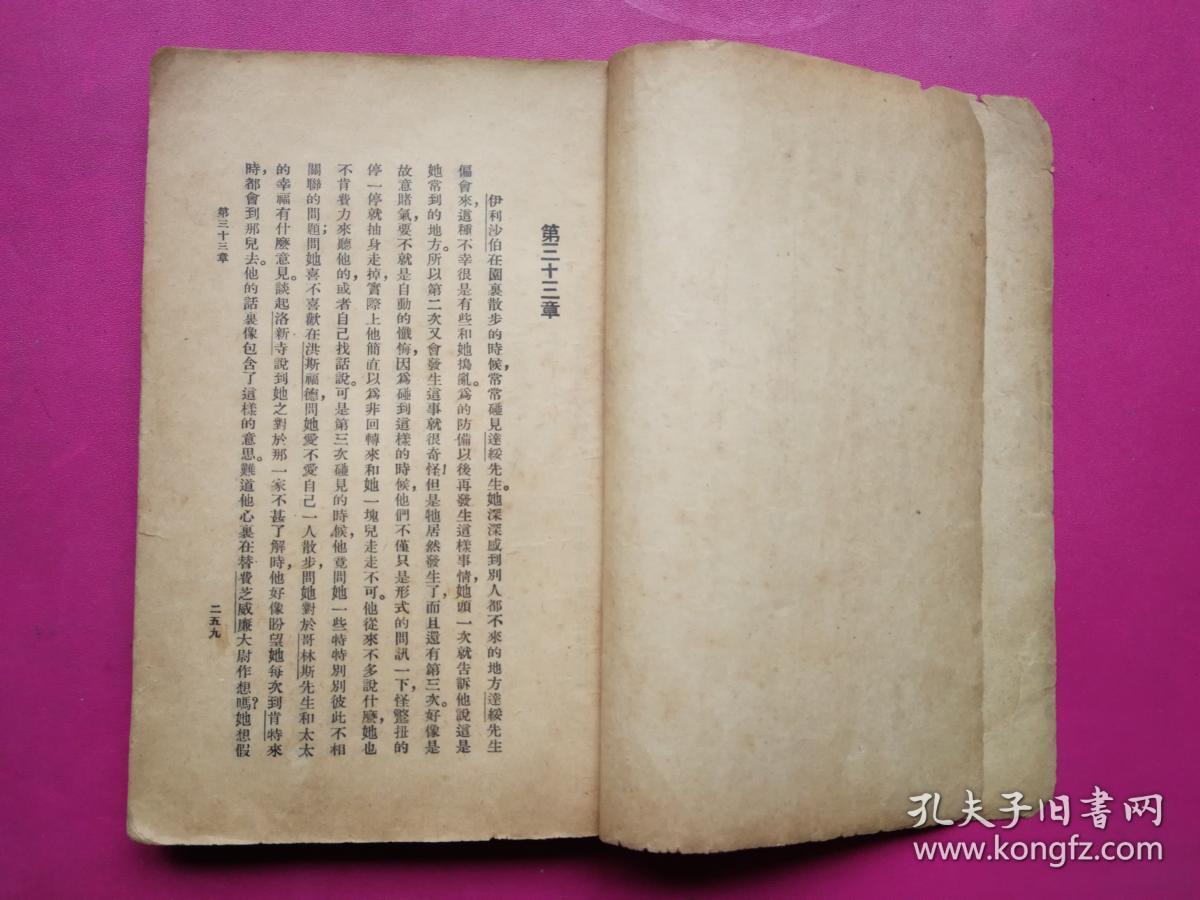 第三十三章
伊利沙伯在園裏散步的時候，常常碰見達綏先生。她深深感到別人都不來的地方達綏先生
偏會來，這種不幸很是有些和她搗亂。爲的防備以後再發生這樣事情，她頭一次就告訴他說這是
她常到的地方。所以第二次又會發生這事就很奇怪！但是牠居然發生了，而且還有第三次。好像是
故意賭氣，要不就是自動的懺悔，因爲碰到這樣的時候，他們不僅只是形式的問訊一下，怪彆扭的
停一停就抽身走掉，實際上他簡直以爲非回轉來和她一塊兒走走不可。他從來不多說什麽，她也
不肯費力來聽他的，或者自己找話說。可是第三次碰見的時候，他竟問她一些特特別別彼此不相
關聯的問題；問她喜不喜歡在洪斯福德，問她愛不愛自己一人散步，問她對於哥林斯先生和太太
的幸福有什麽意見。談起洛新寺說到她之對於那一家不甚了解時，他好像盼望她每次到肯特來
時，都會到那兒去。他的話裏像包含了這樣的意思。難道他心裏在替費芝威廉大尉作想嗎？她想假
第三十三章
二五九
孔夫子旧书网
www.kongfz.com